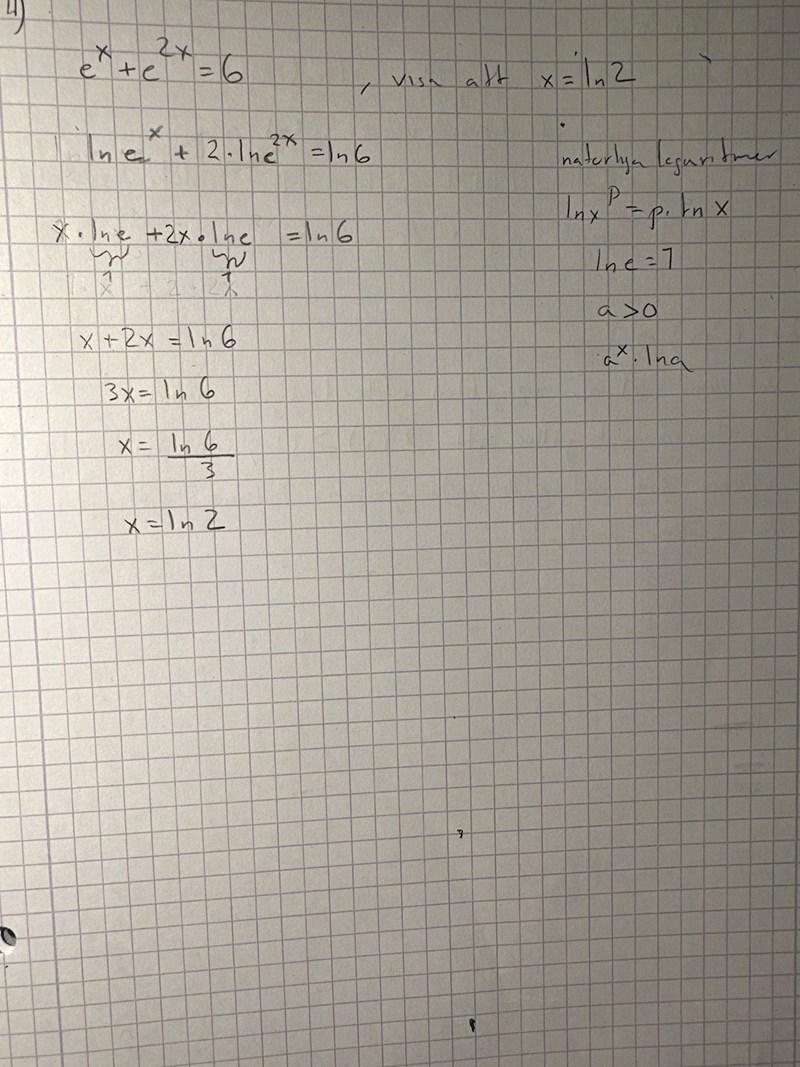 4)
e^x + e^2x = 6 , visa att x = ln 2
ln e^x + 2 · ln e^2x = ln 6
x · ln e + 2x · ln e = ln 6
1 1
x + 2x = ln 6
3x = ln 6
x = ln 6 / 3
x = ln 2
naturlya logaritmer
ln x^p = p · ln x
ln e = 1
a > 0
a^x · ln a